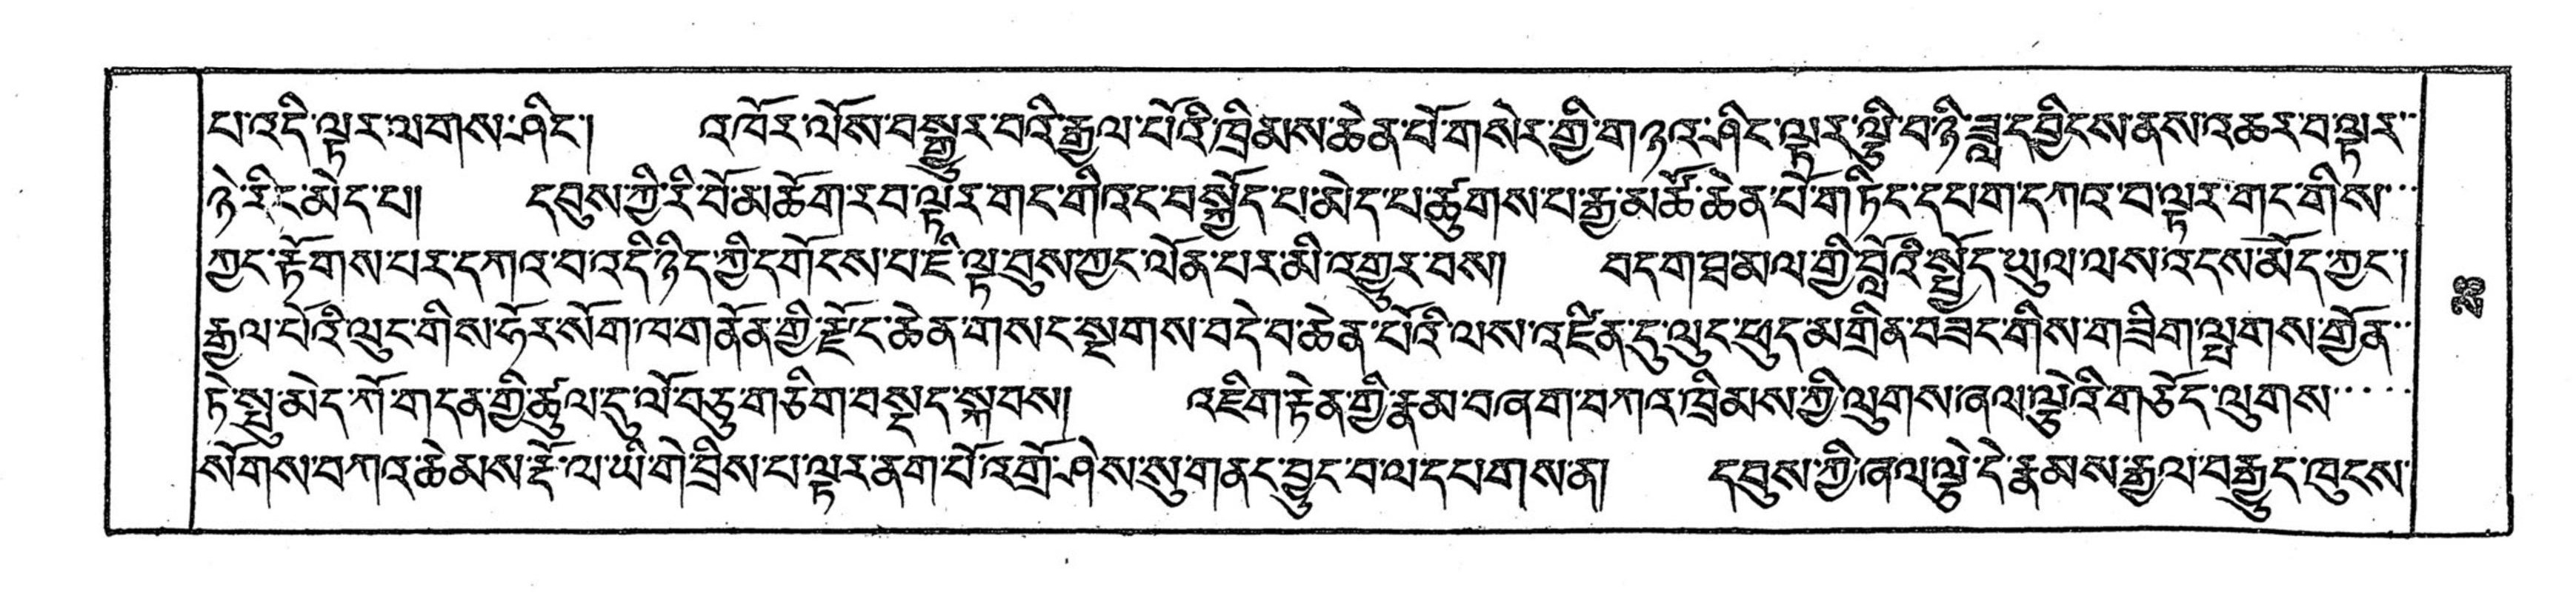 པ་འདི་ལྟར་ལགས་ཤིང་།    འཁོར་ལོས་བསྒྱུར་བའི་རྒྱལ་པོའི་ཁྲིམས་ཆེན་པོ་གསེར་གྱི་གཉའ་ཤིང་ལྟར་ལྕི་བ་ཉི་ཟླ་དབྱིངས་ནས་འཆར་བ་ལྟར་
ཉེ་རིང་མེད་པ།    དབུས་ཀྱི་རི་བོ་མཆོག་རབ་ལྟར་གང་གིའང་བསྐྱོད་པ་མེད་པ་ཚུགས་པ་རྒྱ་མཚོ་ཆེན་པོ་གཏིང་དཔག་དཀའ་བ་ལྟར་གང་གིས་
ཀྱང་རྟོགས་པར་དཀའ་བ་འདི་ཉིད་ཀྱི་དགོངས་པ་ཇི་ལྟ་བུས་ཀྱང་ལོན་པར་མི་འགྱུར་བས།    བདག་ཐམལ་གྱི་བློའི་སྤྱོད་ཡུལ་ལས་འདས་མོད་ཀྱང་།
རྒྱལ་པོའི་ལུང་གིས་ཧོར་སོག་ཁ་གནོན་གྱི་རྫོང་ཆེན་གསང་སྔགས་བདེ་བ་ཆེན་པོའི་ལས་འཛིན་དུ་ལུང་ཕུད་མགྲིན་བཟང་གིས་གཟིག་ལྤགས་གྱོན་
ཏེ་སྤུ་མེད་ཀོ་གདན་གྱི་ཚུལ་དུ་ལོ་བཅུ་གཅིག་བསྡད་སྐབས།    འཇིག་རྟེན་གྱི་རྣམ་བཞག་བཀའ་ཁྲིམས་ཀྱི་ལུགས་ཞལ་ལྕེའི་གཅོད་ལུགས་
སོགས་བཀའ་ཆེམས་རྡོ་ལ་ཡི་གེ་བྲིས་པ་ལྟར་ནག་པོ་འགྲོ་ཤེས་སུ་གནང་བྱུང་བ་ལ་དཔགས་ན།    དབུས་ཀྱི་ཞལ་ལྕེ་དེ་རྣམས་རྒྱལ་བརྒྱུད་ཁུངས་